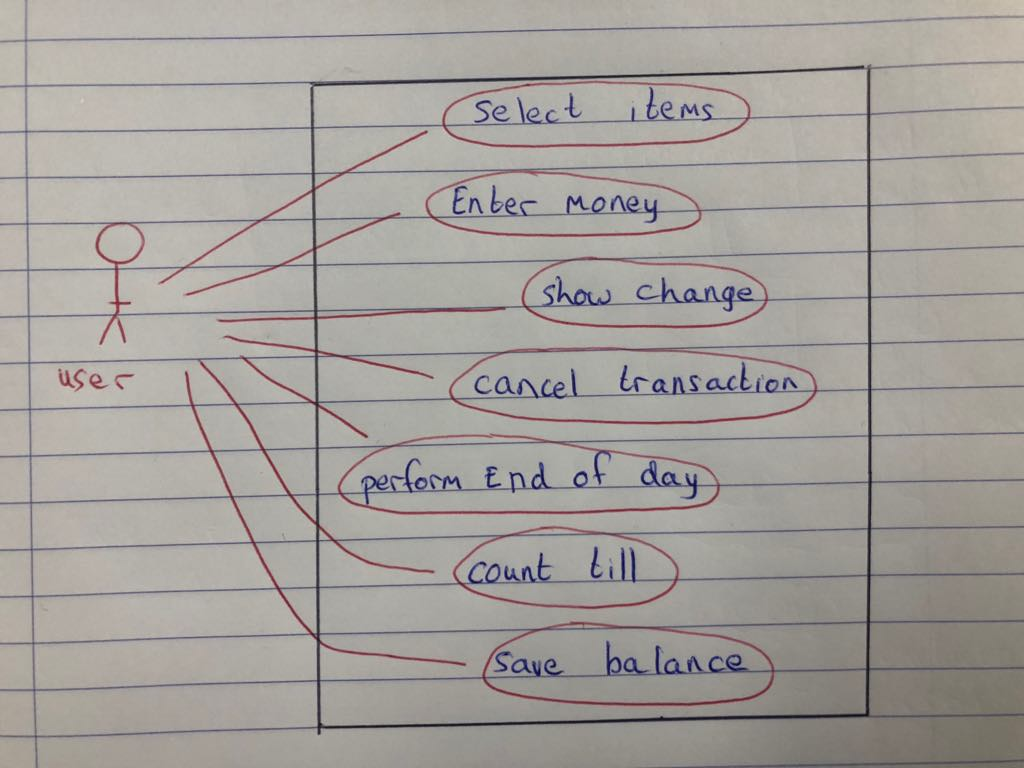 select items
Enter money
show change
user
cancel transaction
perform End of day
count till
save balance